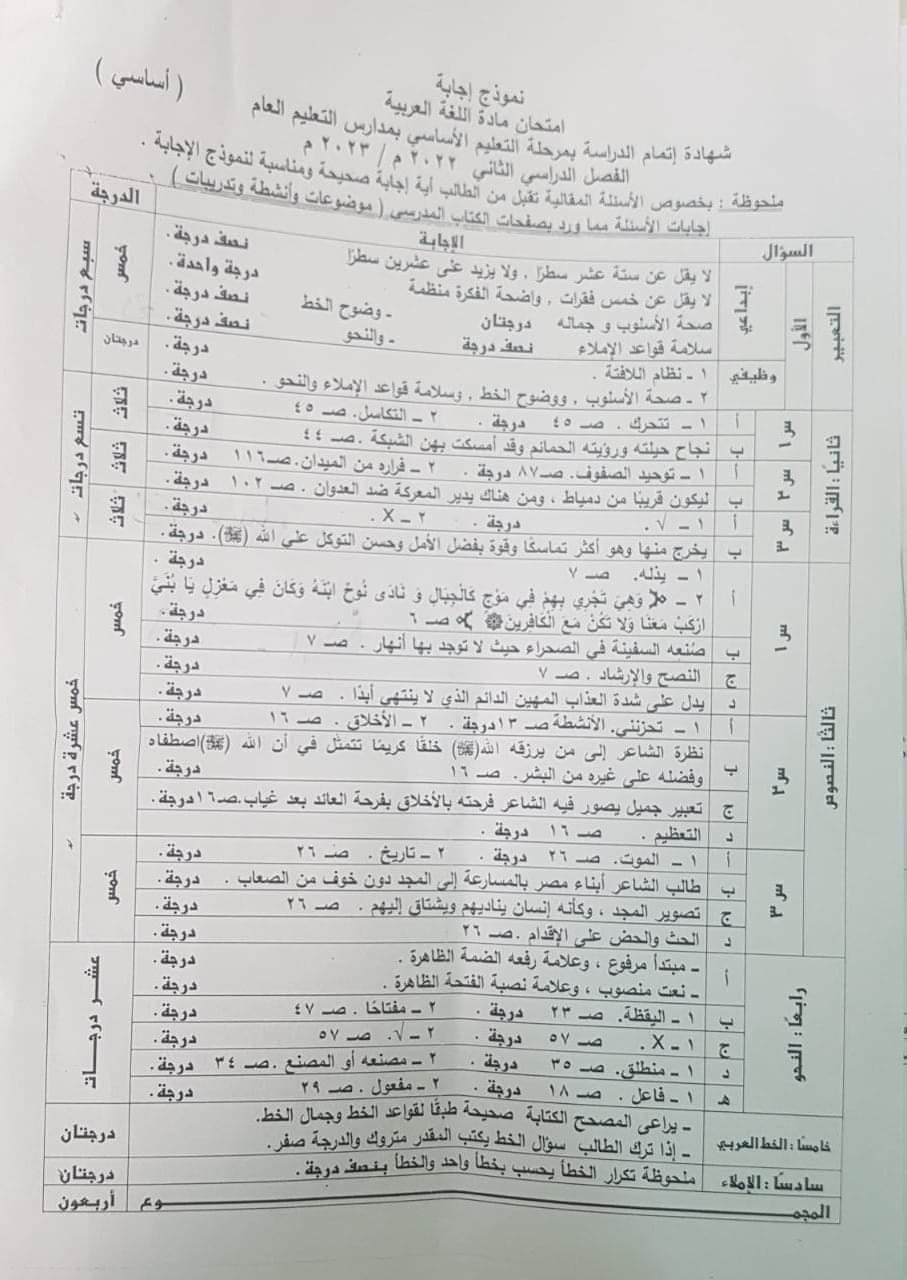 ( أساسي )
نموذج إجابة
امتحان مادة اللغة العربية
شهادة إتمام الدراسة بمرحلة التعليم الأساسي بمدارس التعليم العام
الفصل الدراسي الثاني ٢٠٢٢ م / ٢٠٢٣ م
ملحوظة : بخصوص الأسئلة المقالية تقبل من الطالب أية إجابة صحيحة ومناسبة لنموذج الإجابة .
إجابات الأسئلة مما ورد بصفحات الكتاب المدرسي ( موضوعات وأنشطة وتدريبات ) .
السؤال الإجابة الدرجة
التعبير الأول إبداعي لا يقل عن ستة عشر سطرًا . ولا يزيد على عشرين سطرًا نصف درجة . خمس سبع درجات
لا يقل عن خمس فقرات , واضحة الفكرة منظمة درجة واحدة .
صحة الأسلوب و جماله درجتان - وضوح الخط نصف درجة .
سلامة قواعد الإملاء نصف درجة - والنحو نصف درجة .
وظيفي ١ - نظام اللافتة . درجة . درجتان
٢ - صحة الأسلوب , ووضوح الخط , وسلامة قواعد الإملاء والنحو . درجة .
ثانيًا : القراءة س١ أ ١ – تتحرك . صـ ٤٥ درجة . ٢ – التكاسل . صـ ٤٥ درجة . ثلاث تسع درجات
ب نجاح حيلته ورؤيته الحمائم وقد أمسكت بهن الشبكة . صـ ٤٤ درجة .
س٢ أ ١ – توحيد الصفوف . صـ ٨٧ درجة . ٢ – فراره من الميدان . صـ ١١٦ درجة . ثلاث
ب ليكون قريبًا من دمياط ، ومن هناك يدير المعركة ضد العدوان . صـ ١٠٢ درجة .
س٣ أ ١ – √ . درجة . ٢ – X . درجة . ثلاث
ب يخرج منها وهو أكثر تماسكًا وقوة بفضل الأمل وحسن التوكل على الله (ﷻ). درجة .
ثالثًا : النصوص س١ أ ١ – يذله . صـ ٧ درجة . خمس خمس عشرة درجة
٢ – ﴿ وَهِيَ تَجْرِي بِهِمْ فِي مَوْجٍ كَالْجِبَالِ وَ نَادَى نُوحٌ ابْنَهُ وَكَانَ فِي مَعْزِلٍ يَا بُنَيَّ
ارْكَبْ مَعَنَا وَلَا تَكُنْ مَعَ الْكَافِرِينَ ﴾ صـ ٦ درجة .
ب صُنعه السفينة في الصحراء حيث لا توجد بها أنهار . صـ ٧ درجة .
ج النصح والإرشاد . صـ ٧ درجة .
د يدل على شدة العذاب المهين الدائم الذي لا ينتهي أبدًا . صـ ٧ درجة .
س٢ أ ١ – تحزنني. الأنشطة صـ ١٣ درجة . ٢ – الأخلاق . صـ ١٦ درجة . خمس
ب نظرة الشاعر إلى من يرزقه الله(ﷻ) خلقًا كريمًا تتمثل في أن الله (ﷻ)اصطفاه
وفضله على غيره من البشر . صـ ١٦ درجة .
ج تعبير جميل يصور فيه الشاعر فرحته بالأخلاق بفرحة العائد بعد غياب . صـ ١٦ درجة .
د التعظيم . صـ ١٦ درجة .
س٣ أ ١ – الموت . صـ ٢٦ درجة . ٢ – تاريخ . صـ ٢٦ درجة . خمس
ب طالب الشاعر أبناء مصر بالمسارعة إلى المجد دون خوف من الصعاب . درجة .
ج تصوير المجد ، وكأنه إنسان يناديهم ويشتاق إليهم . صـ ٢٦ درجة .
د الحث والحض على الإقدام . صـ ٢٦ درجة .
رابعًا : النحو أ – مبتدأ مرفوع ، وعلامة رفعه الضمة الظاهرة . درجة . عشر درجات
– نعت منصوب ، وعلامة نصبة الفتحة الظاهرة . درجة .
ب ١ – اليقظة . صـ ٢٣ درجة . ٢ – مفتاحًا . صـ ٤٧ درجة .
ج ١ – X . صـ ٥٧ درجة . ٢ – √ . صـ ٥٧ درجة .
د ١ – منطلق . صـ ٣٥ درجة . ٢ – مصنعه أو المصنع . صـ ٣٤ درجة .
هـ ١ – فاعل . صـ ١٨ درجة . ٢ – مفعول . صـ ٢٩ درجة .
خامسًا : الخط العربي – يراعى المصحح الكتابة صحيحة طبقًا لقواعد الخط وجمال الخط. درجتان
– إذا ترك الطالب سؤال الخط يكتب المقدر متروك والدرجة صفر .
سادسًا : الإملاء ملحوظة تكرار الخطأ يحسب بخطأ واحد والخطأ بنصف درجة . درجتان
المجمــــوع أربعون